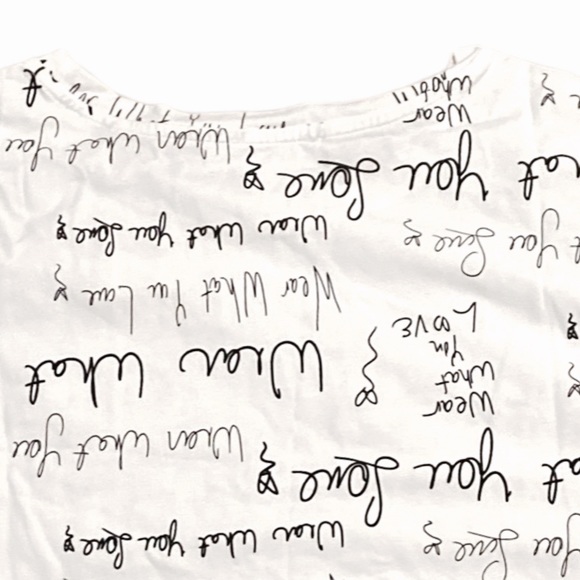 You Love
Wear What You Love
You Love
Wear What You
Wear
What
You
LOVE
Wear What
Wear What You Love
You Love
Wear What You Love
You Love
Wear What You
Wear